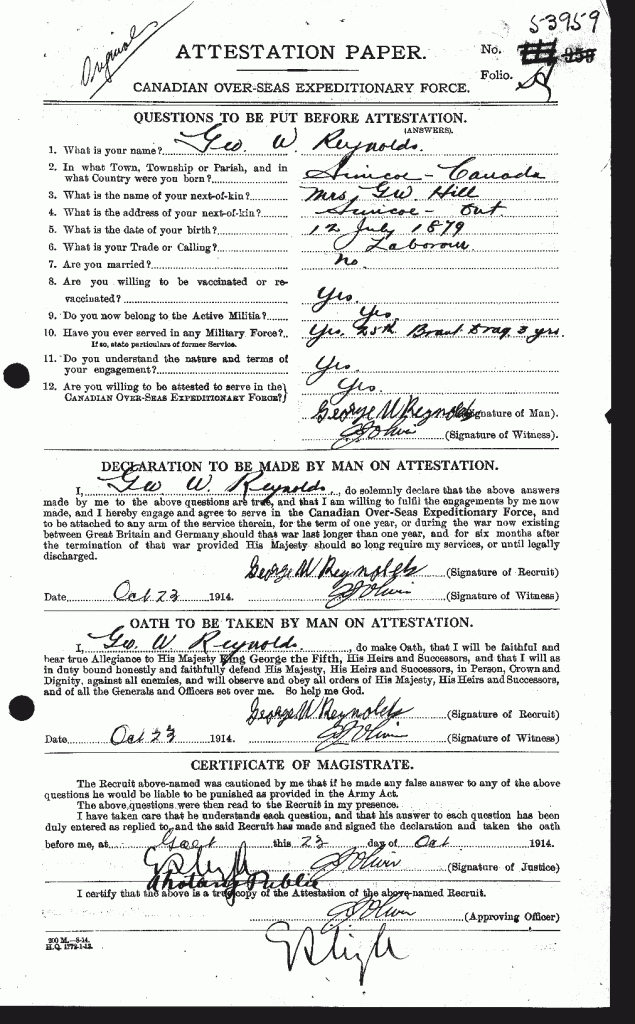 53959
Original
ATTESTATION PAPER.
No.
Folio.
CANADIAN OVER-SEAS EXPEDITIONARY FORCE.
QUESTIONS TO BE PUT BEFORE ATTESTATION.
(ANSWERS).
1. What is your name? Geo. W. Reynolds.
2. In what Town, Township or Parish, and in
what Country were you born? Simcoe - Canada
3. What is the name of your next-of-kin? Mrs. G.W. Hill
4. What is the address of your next-of-kin? Simcoe - Ont
5. What is the date of your birth? 12 July 1879
6. What is your Trade or Calling? Laborour
7. Are you married? No.
8. Are you willing to be vaccinated or re-
vaccinated? Yes.
9. Do you now belong to the Active Militia? Yes.
10. Have you ever served in any Military Force? Yes. 25th Brant Drag 3 yrs.
If so, state particulars of former Service.
11. Do you understand the nature and terms of
your engagement? Yes.
12. Are you willing to be attested to serve in the
CANADIAN OVER-SEAS EXPEDITIONARY FORCE? Yes.
George W Reynolds (Signature of Man).
(Signature of Witness).
DECLARATION TO BE MADE BY MAN ON ATTESTATION.
I, Geo W Reynolds, do solemnly declare that the above answers
made by me to the above questions are true, and that I am willing to fulfil the engagements by me now
made, and I hereby engage and agree to serve in the Canadian Over-Seas Expeditionary Force, and
to be attached to any arm of the service therein, for the term of one year, or during the war now existing
between Great Britain and Germany should that war last longer than one year, and for six months after
the termination of that war provided His Majesty should so long require my services, or until legally
discharged.
George W Reynolds (Signature of Recruit)
Date Oct 23 1914. (Signature of Witness)
OATH TO BE TAKEN BY MAN ON ATTESTATION.
I, Geo W Reynolds, do make Oath, that I will be faithful and
bear true Allegiance to His Majesty King George the Fifth, His Heirs and Successors, and that I will as
in duty bound honestly and faithfully defend His Majesty, His Heirs and Successors, in Person, Crown and
Dignity, against all enemies, and will observe and obey all orders of His Majesty, His Heirs and Successors,
and of all the Generals and Officers set over me. So help me God.
George W Reynolds (Signature of Recruit)
Date Oct 23 1914. (Signature of Witness)
CERTIFICATE OF MAGISTRATE.
The Recruit above-named was cautioned by me that if he made any false answer to any of the above
questions he would be liable to be punished as provided in the Army Act.
The above questions were then read to the Recruit in my presence.
I have taken care that he understands each question, and that his answer to each question has been
duly entered as replied to, and the said Recruit has made and signed the declaration and taken the oath
before me, at Galt this 23 day of Oct 1914.
(Signature of Justice)
A Notary Public
I certify that the above is a true copy of the Attestation of the above-named Recruit.
(Approving Officer)
200 M.-8-14.
H.Q. 1772-1-13.